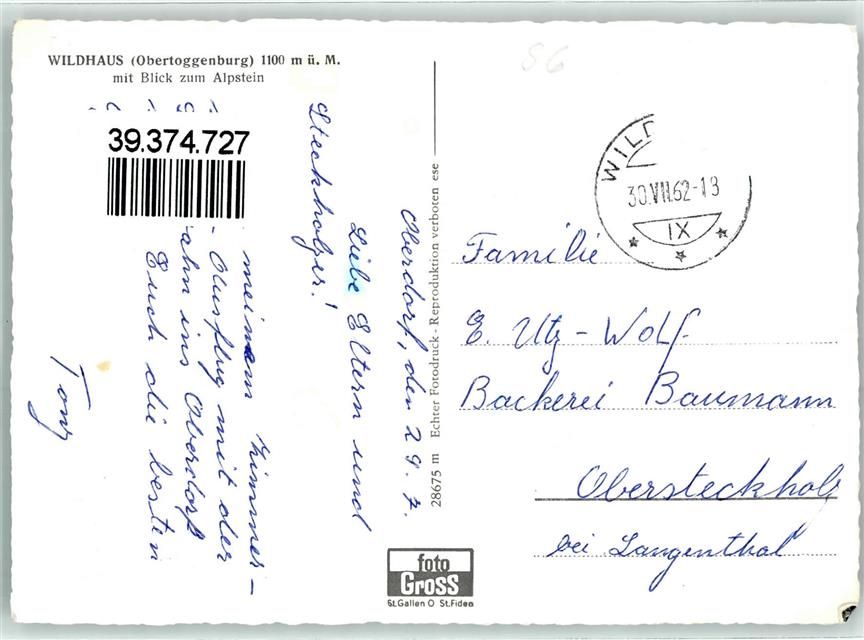 WILDHAUS (Obertoggenburg) 1100 m ü. M.
mit Blick zum Alpstein
39.374.727
Oberdorf, den 29. 7.
Liebe Eltern und
Steckholzer!
meinem Zimmer-
Ausflug mit der
ahn ins Oberdorf
Euch die besten
Tony
28675 m Echter Fotodruck - Reproduktion verboten ese
foto
GROSS
St.Gallen O St.Fiden
WILD
30.VII.62-13
IX
Familie
E. Utz-Wolf
Backerei Baumann
Obersteckholz
bei Langenthal